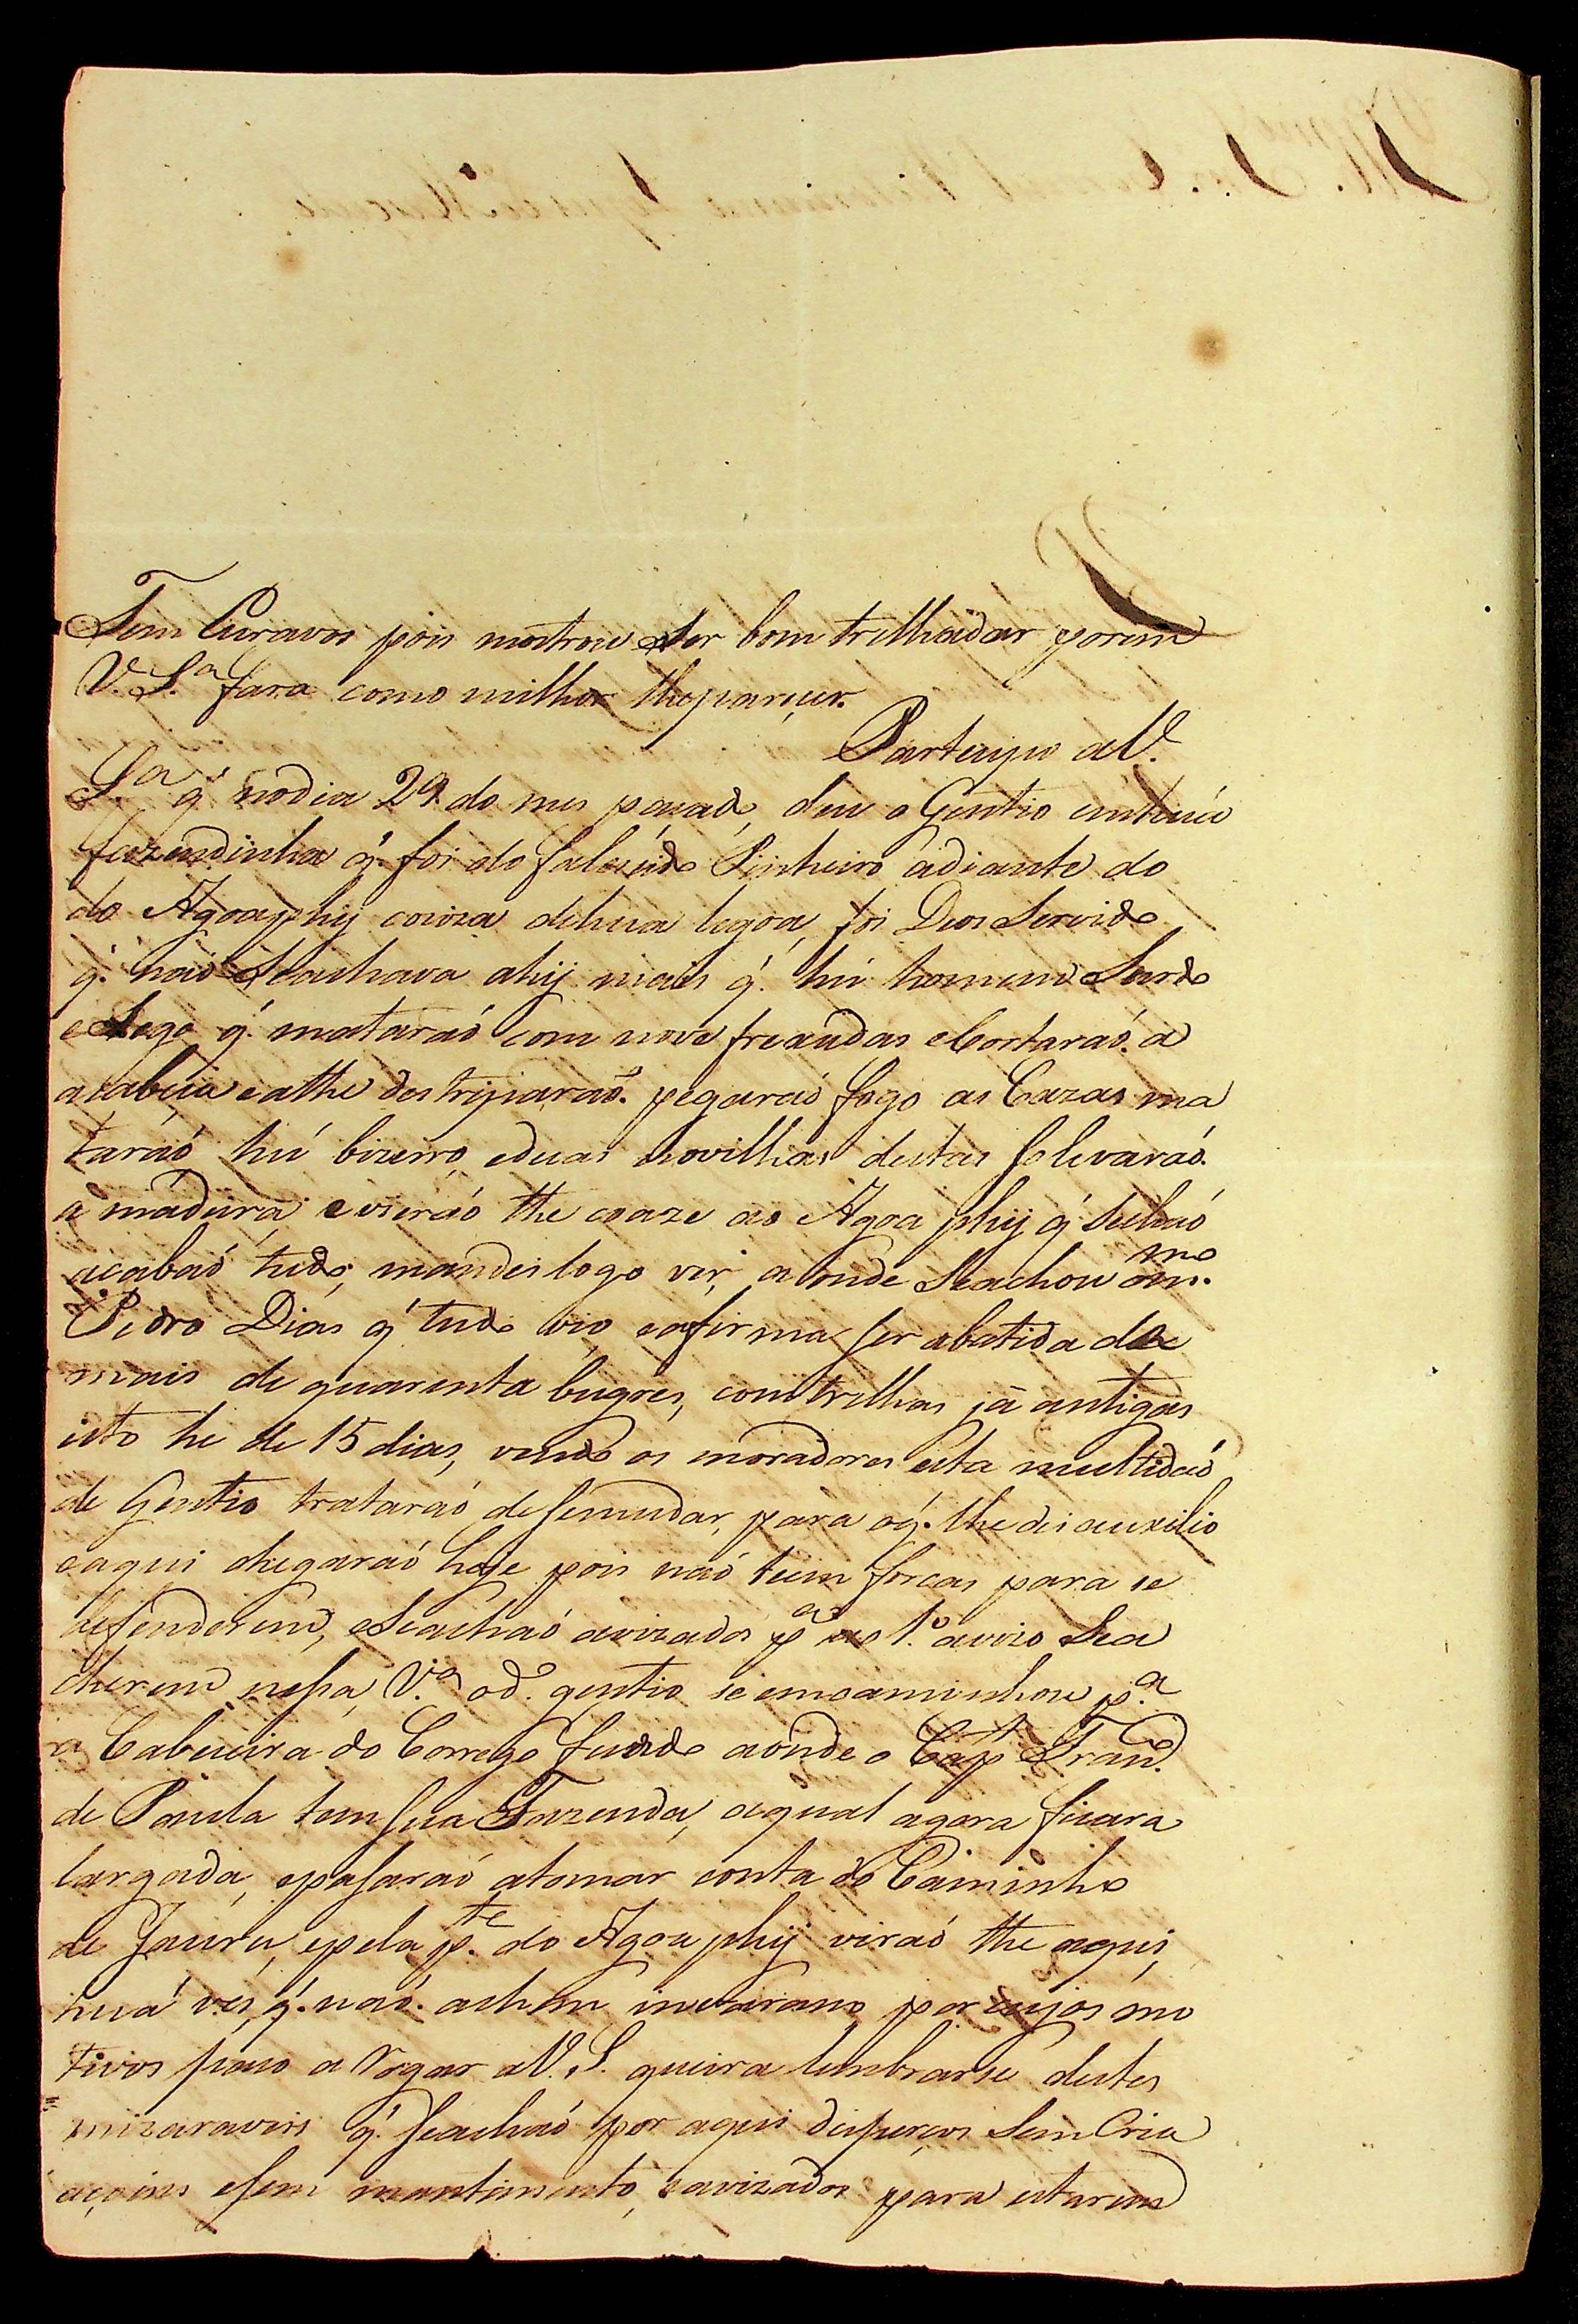 Sem Curavos pois mostrou Ser bom trilhador porem
V. S.ª fara como milhor lheparecer.
Partecipo aV.
S.ª q̃ nodia 29 do mes pasado, deu o Gentio em
fazendinha q̃ foi do falecido Pinheiro adiante do
do Agoaphy couza dehua legoa, foi Deos Servido
q̃ naó Seachava ahy mais q̃ hú homem Surdo
e Sego q̃ mataraó com nove frexadas eCortaraó. a
acabeia eathe destriparaó. pegaraó fogo as Cazas ma
taraó hú bizerro eduas novilhas destas solevaraó.
a madura evieraó the coaze ao Agoa phy q̃
acabaó tudo, mandei logo ver, aonde Seachou o m.mo
Pedro Dias q̃ tudo vio, eafirma ser abatida de
mais de quarenta bugres, comtrilhas já antigas
isto he de 15 dias, vendo os moradores esta multidaó
de Gentio trataraó desemudar, para oq̃. lhe dei auxilio
eaqui chegaraó hoje pois naó teim forcas para se
defenderem, eSeachaó avizados p.ª ao 1.º avizo Sea
cherem nesa V.ª od.º gentio se emcaminhou p.ª
a Cabeceira do Corrego fundo aonde o Cap.m Fran.co
de Paula tem sua Fazenda, aqual agora ficara
largada, epasaraó atomar conta do Caminho
de Jauru, epela p.te do Agoa phy viraó the aqui,
huá ves, q̃. naó. achem por cujos mo
tivos paso a Rogar aV. S. queira lembrarse destes
mizaraveis q̃. Seachaó por aqui despersos Sem Cria
açoins esem mantimento, eavizados para estarem